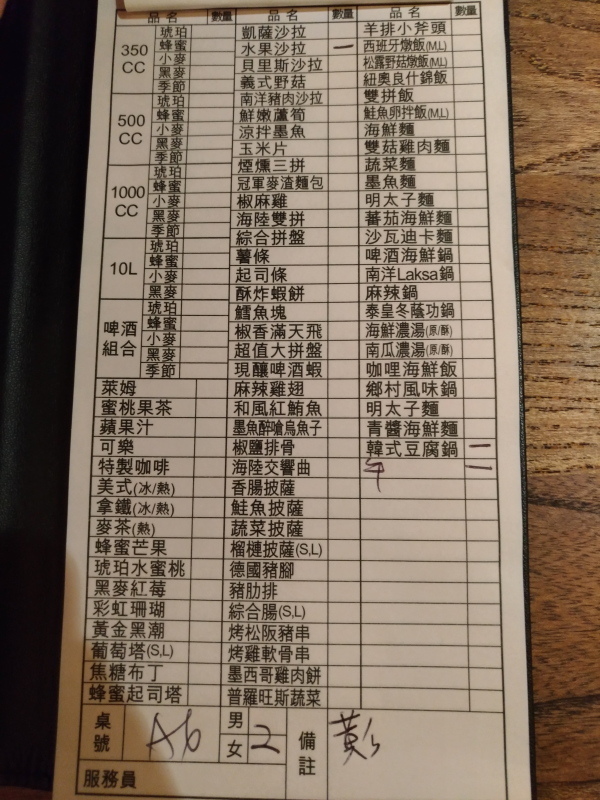 品名 數量 品名 數量 品名 數量
350 CC 琥珀 凱薩沙拉 羊排小斧頭
蜂蜜 水果沙拉 一 西班牙燉飯(M,L)
小麥 貝里斯沙拉 松露野菇燉飯(M,L)
黑麥 義式野菇 紐奧良什錦飯
季節 南洋豬肉沙拉 雙拼飯
500 CC 琥珀 鮮嫩蘆筍 鮭魚卵拌飯(M,L)
蜂蜜 涼拌墨魚 海鮮麵
小麥 玉米片 雙菇雞肉麵
黑麥 煙燻三拼 蔬菜麵
季節 冠軍麥渣麵包 墨魚麵
1000 CC 琥珀 椒麻雞 明太子麵
蜂蜜 海陸雙拼 蕃茄海鮮麵
小麥 綜合拼盤 沙瓦迪卡麵
黑麥 薯條 啤酒海鮮鍋
季節 起司條 南洋Laksa鍋
10L 琥珀 酥炸蝦餅 麻辣鍋
蜂蜜 鱈魚塊 泰皇冬蔭功鍋
小麥 椒香滿天飛 海鮮濃湯(原/酥)
黑麥 超值大拼盤 南瓜濃湯(原/酥)
啤酒組合 琥珀 現釀啤酒蝦 咖哩海鮮飯
蜂蜜
小麥
黑麥
季節
萊姆 麻辣雞翅 鄉村風味鍋
蜜桃果茶 和風紅鮪魚 明太子麵
蘋果汁 墨魚醉嗆烏魚子 青醬海鮮麵
可樂 椒鹽排骨 韓式豆腐鍋 二
特製咖啡 海陸交響曲 一
美式(冰/熱) 香腸披薩
拿鐵(冰/熱) 鮭魚披薩
麥茶(熱) 蔬菜披薩
蜂蜜芒果 榴槤披薩(S,L)
琥珀水蜜桃 德國豬腳
黑麥紅莓 豬肋排
彩虹珊瑚 綜合腸(S,L)
黃金黑潮 烤松阪豬串
葡萄塔(S,L) 烤雞軟骨串
焦糖布丁 墨西哥雞肉餅
蜂蜜起司塔 普羅旺斯蔬菜
桌號 A6 男 女 2 備註
服務員